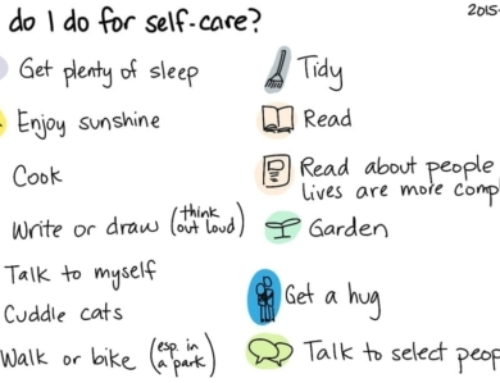 do I do for self-care?
2015-
Get plenty of sleep
Enjoy sunshine
Cook
Write or draw (think out loud)
Talk to myself
Cuddle cats
Walk or bike (esp. in a park)
Tidy
Read
Read about people
lives are more comp
Garden
Get a hug
Talk to select peop